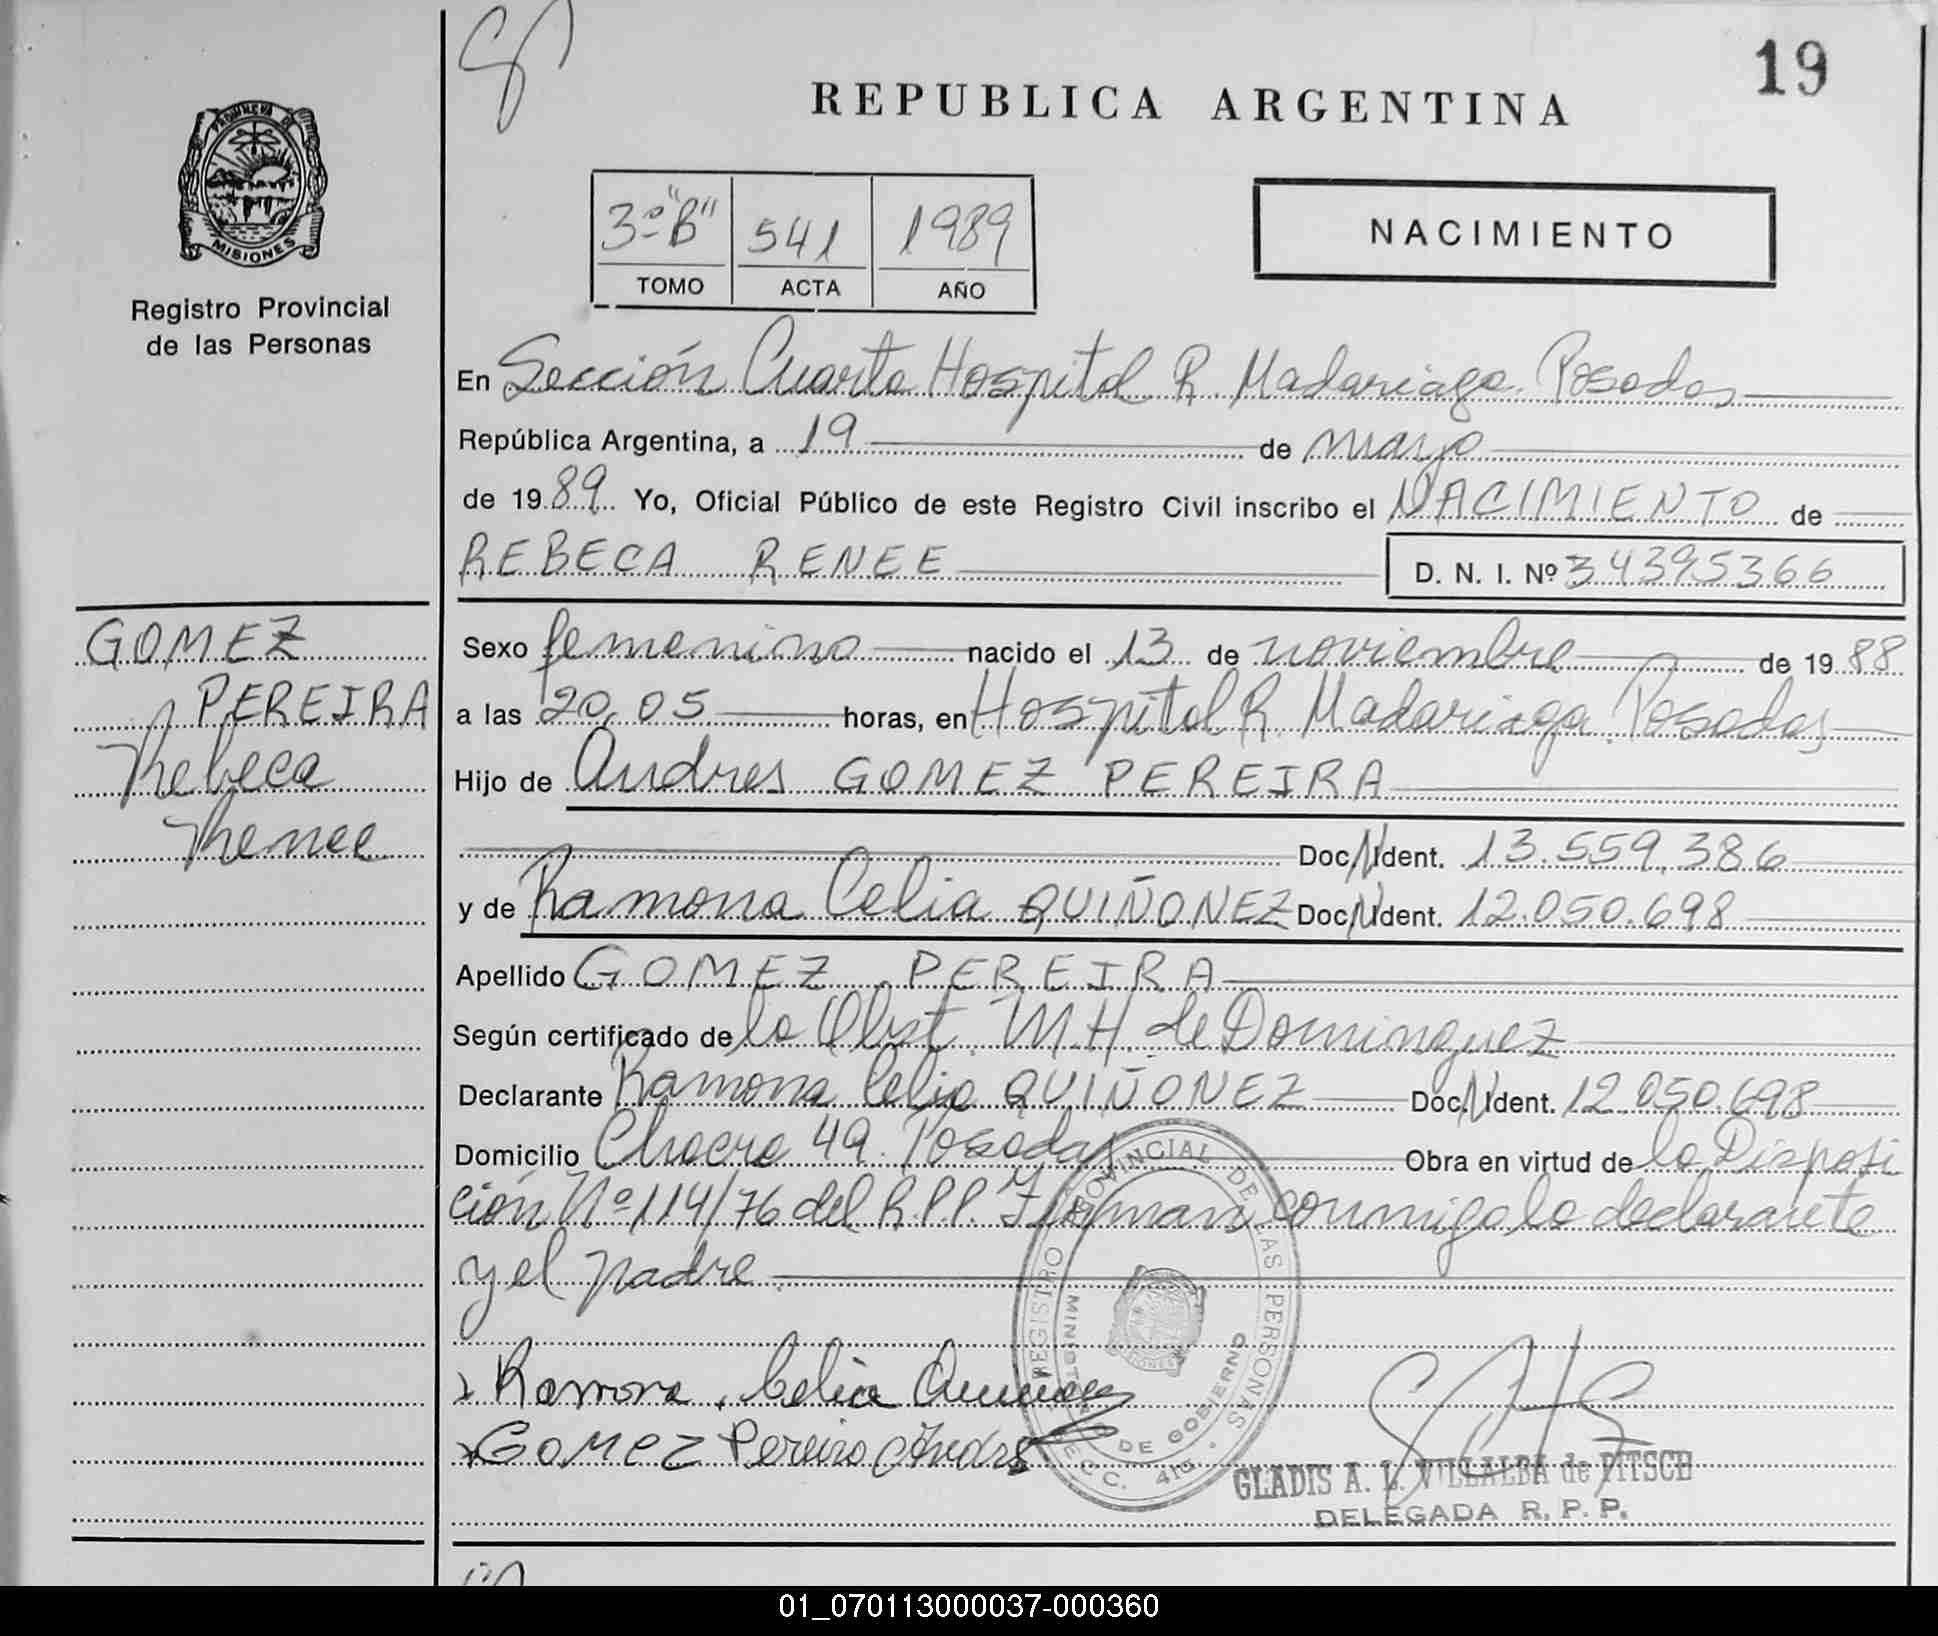 19
REPUBLICA ARGENTINA
PROVINCIA DE
MISIONES
Registro Provincial
de las Personas
3º "B" 541 1989
TOMO ACTA AÑO
NACIMIENTO
En Sección Cuarta Hospital R. Madariaga. Posadas
República Argentina, a 19 de mayo
de 1989 Yo, Oficial Público de este Registro Civil inscribo el NACIMIENTO de
REBECA RENEE D. N. I. Nº 34395366
GOMEZ
PEREIRA
Rebeca
Renee
Sexo femenino nacido el 13 de noviembre de 1988
a las 20,05 horas, en Hospital R. Madariaga. Posadas
Hijo de Andres GOMEZ PEREIRA
Doc. N. Ident. 13.559.386
y de Ramona Celia QUIÑONEZ Doc. N. Ident. 12.050.698
Apellido GOMEZ PEREIRA
Según certificado de la Obst. M.H. de Dominguez
Declarante Ramona Celia QUIÑONEZ Doc. N. Ident. 12.050.698
Domicilio Chacra 49. Posadas Obra en virtud de la Disposi
ción Nº 114/76 del R.P.P. Firman conmigo la declarante
y el padre.
REGISTRO PROVINCIAL DE LAS PERSONAS
MINISTERIO DE GOBIERNO
SECC. 4ta.
Ramona Celia Quiñonez
GOMEZ Pereira Andres
GLADIS A. L. VILLALBA de PITSCH
DELEGADA R. P. P.
01_070113000037-000360